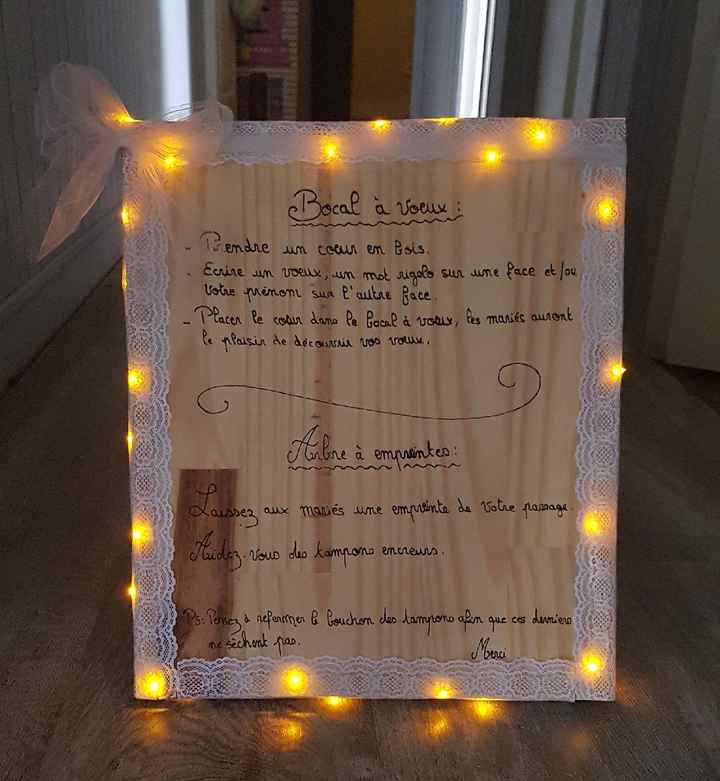 Bocal à voeux :
- Prendre un coeur en bois.
- Ecrire un voeux, un mot rigolo sur une face et/ou
votre prénom sur l'autre face.
- Placer le coeur dans le bocal à voeux, les mariés auront
le plaisir de découvrir vos voeux.
Arbre à empreintes :
Laissez aux mariés une empreinte de votre passage.
Aidez-vous des tampons encreurs.
Ps: Pensez à refermer le bouchon des tampons afin que ces derniers
ne sèchent pas.
Merci